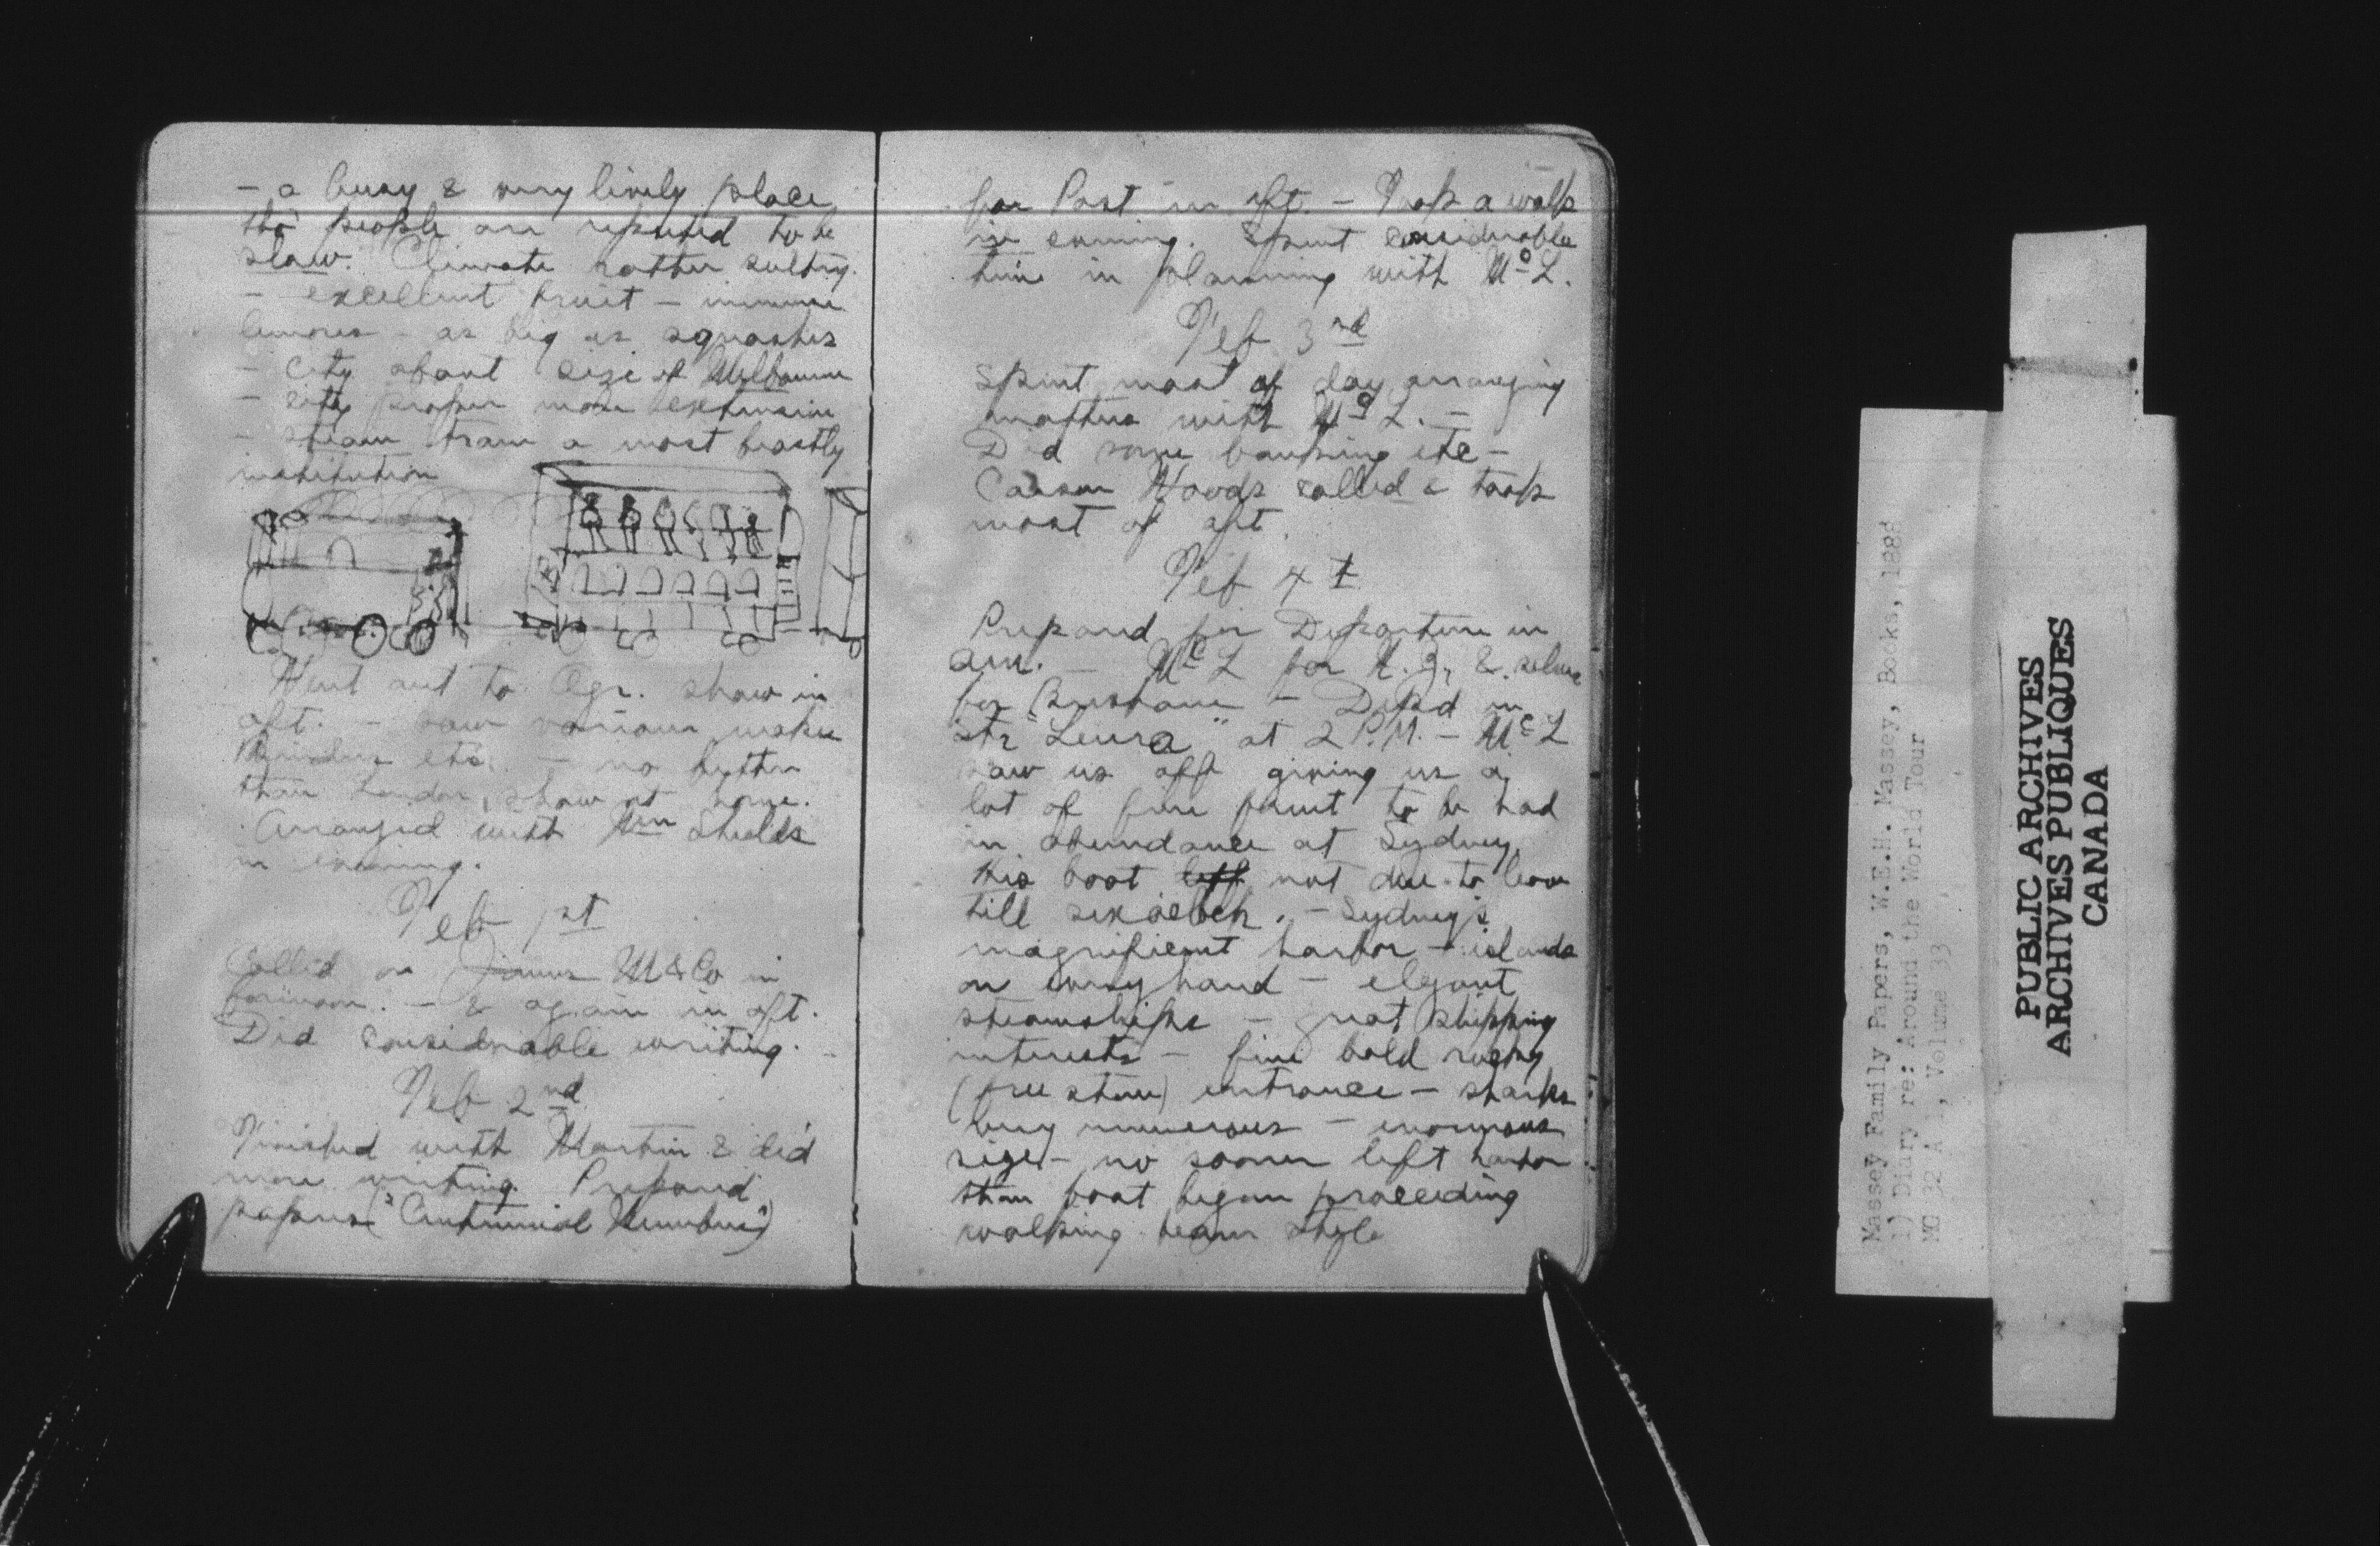 - a busy & very lively place
tho' people are reputed to be
slow. Climate rather sultry.
- excellent fruit - immense
lemons - as big as squashes
- City about size of Melbourne
- city proper more extensive
- steam tram a most beastly
institution
Went out to Agr. show in
aft. - saw various makes
Binders etc. - no better
than London, show at home.
Arranged with Wm Shields
in evening.
Feb 1st
Called on James M & Co in
forenoon. - & again in aft.
Did considerable writing. -
Feb 2nd
Finished with Martin & did
more writing. Prepared
papers ("Centennial Numbers")
for Post in aft. - Took a walk
in evening. Spent considerable
time in planning with McL.
Feb 3rd
Spent most of day arranging
matters with McL. -
Did some banking etc -
Carson Woods called & took
most of aft.
Feb 4t
Prepared for Departure in
am. - McL for N.Z. & selves
for Brisbane - Depd in
str "Leura" at 2 P.M. - McL
saw us off giving us a
lot of fine fruit to be had
in abundance at Sydney.
His boat left not due to leave
till six oclock. - Sydney's
magnificent harbor - islands
on every hand - elegant
steamships - great shipping
interests - fine bold rocky
(free stone) entrance - sharks
very numerous - enormous
size - no sooner left harbor
than boat began proceeding
walking beam style
Massey Family Papers, W.E.H. Massey, Books, 1888
1) Diary re: Around the World Tour
MG 32 A 1, Volume 33
PUBLIC ARCHIVES
ARCHIVES PUBLIQUES
CANADA